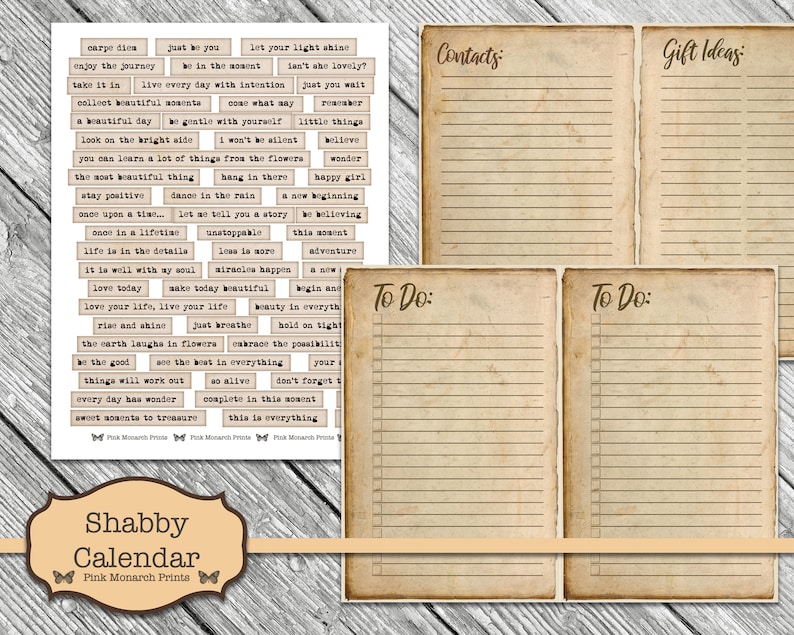 carpe diem just be you let your light shine
enjoy the journey be in the moment isn't she lovely?
take it in live every day with intention just you wait
collect beautiful moments come what may remember
a beautiful day be gentle with yourself little things
look on the bright side i won't be silent believe
you can learn a lot of things from the flowers wonder
the most beautiful thing hang in there happy girl
stay positive dance in the rain a new beginning
once upon a time... let me tell you a story be believing
once in a lifetime unstoppable this moment
life is in the details less is more adventure
it is well with my soul miracles happen a new
love today make today beautiful begin
love your life, live your life beauty in
rise and shine just breathe hold on tight
the earth laughs in flowers embrace the
be the good see the best in everything your
things will work out so alive don't forget
every day has wonder complete in this moment
sweet moments to treasure this is everything
Pink Monarch Prints Pink Monarch Prints Pink Monarch Prints
Contacts:
Gift Ideas:
To Do:
To Do:
Shabby
Calendar
Pink Monarch Prints